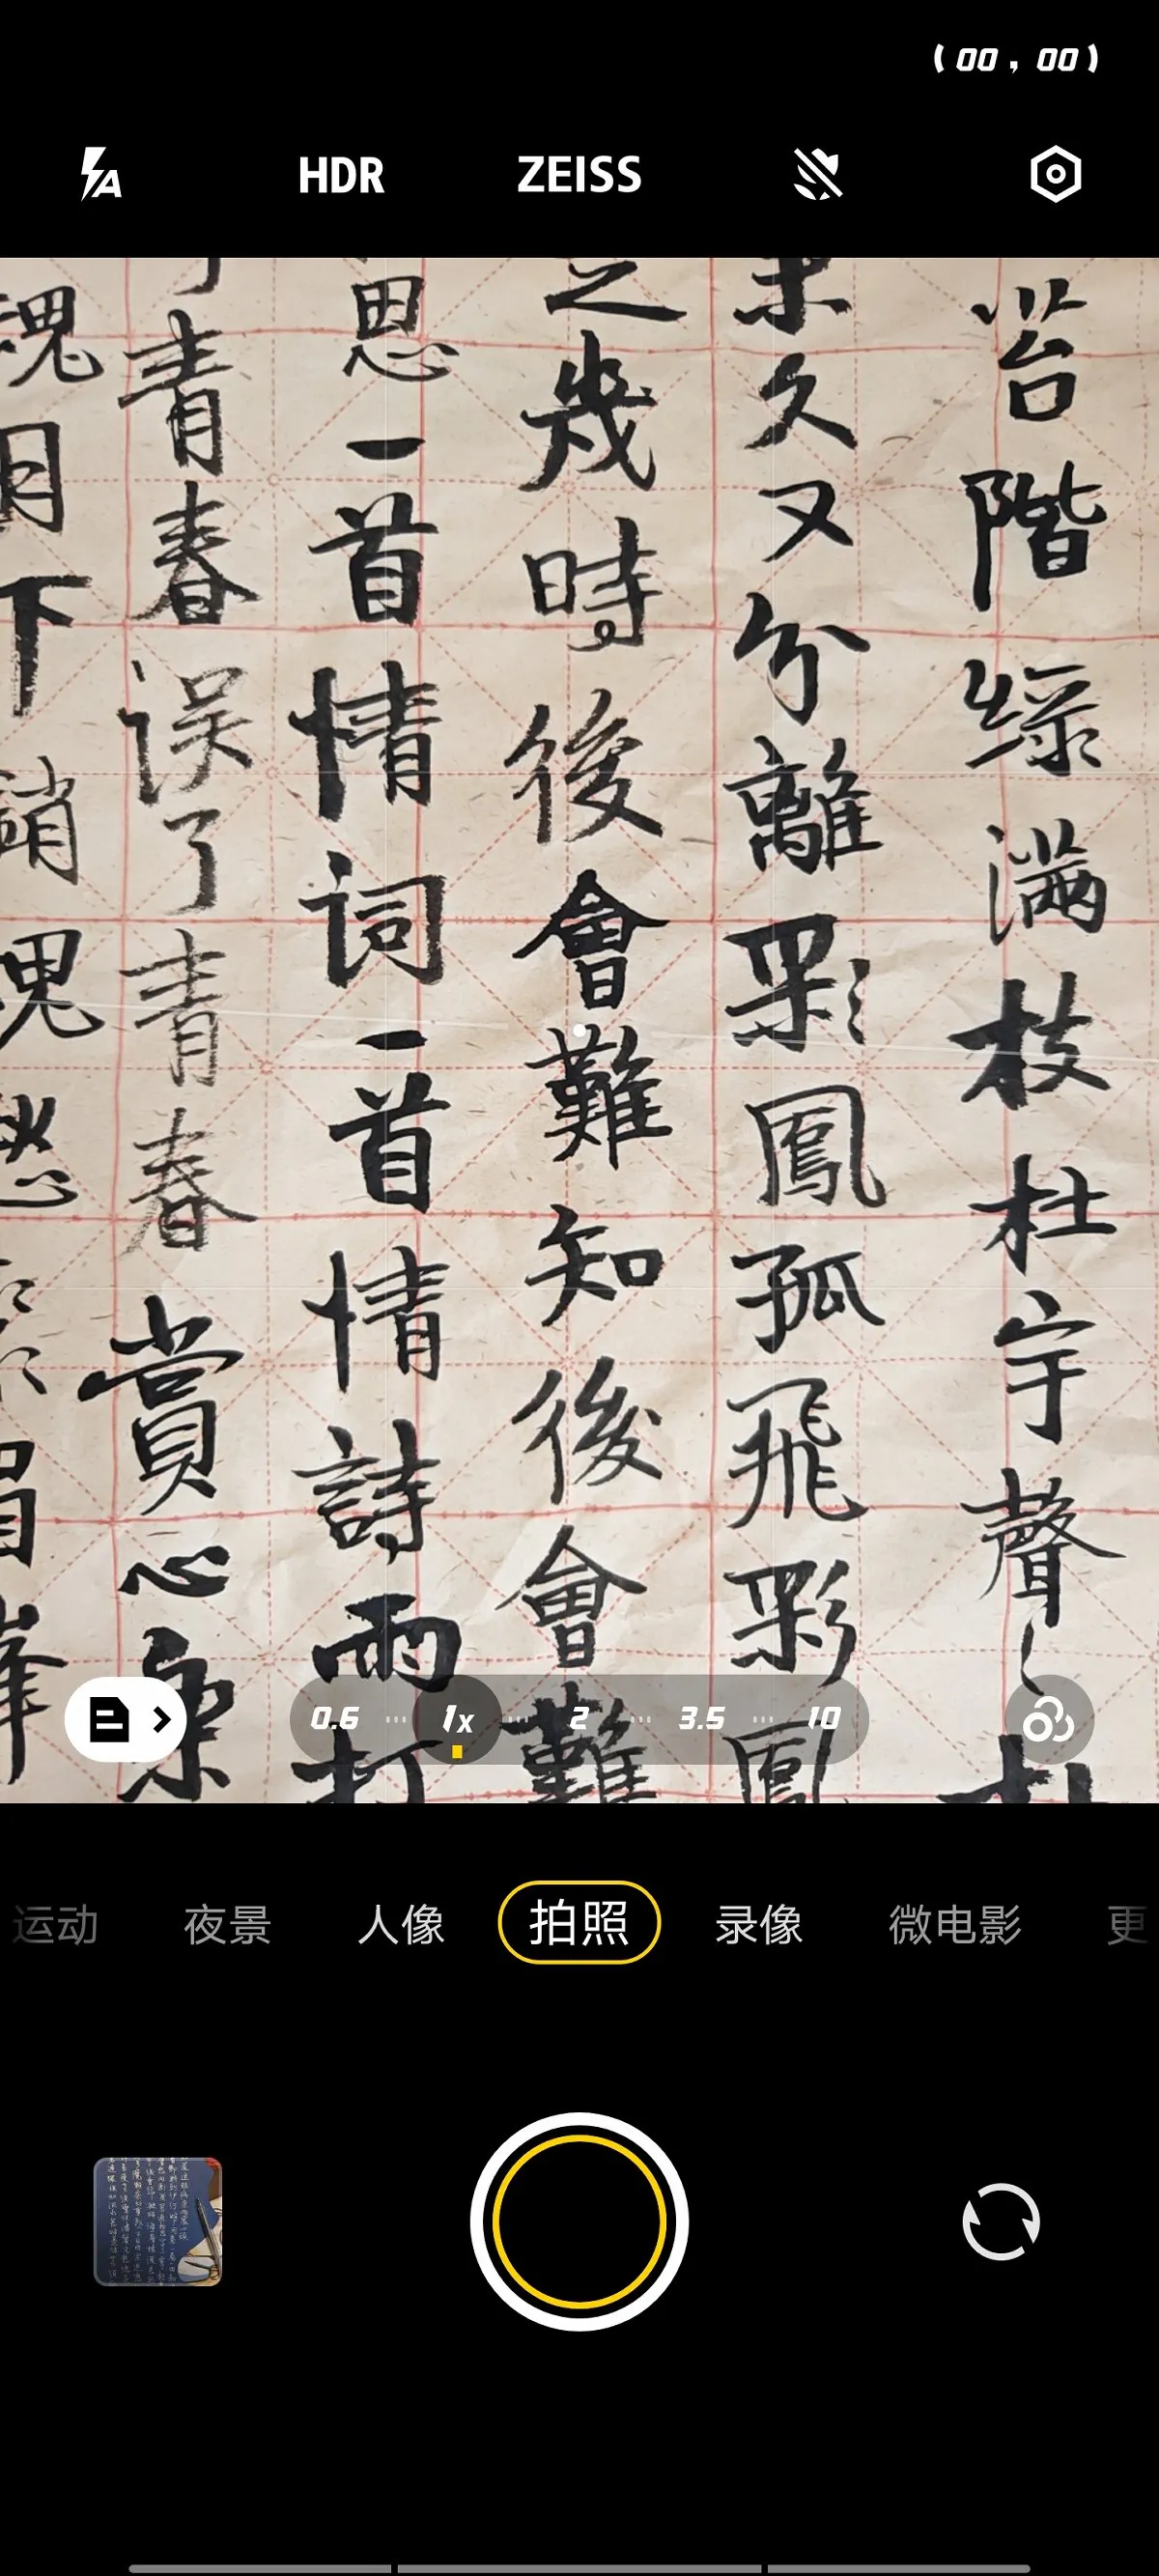 (00，00)
HDR ZEISS
苔階緑满枝杜宇聲
久又分離彩鳳孤飛彩鳳
之幾時後會難知後會難
思一首情词一首情詩雨打
青春误了青春賞心
魂月下銷魂愁
0.6 1x 2 3.5 10
运动 夜景 人像 拍照 录像 微电影 更